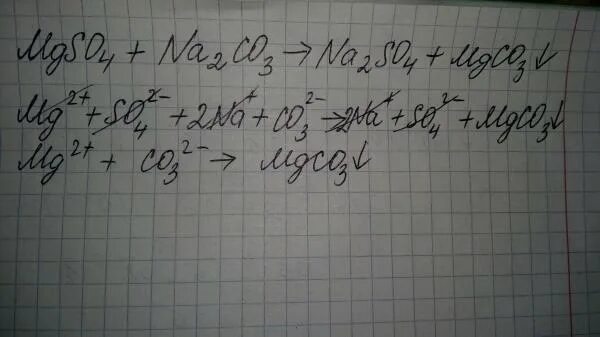 MgSO₄ + Na₂CO₃ → Na₂SO₄ + MgCO₃↓
Mg²⁺ + SO₄²⁻ + 2Na⁺ + CO₃²⁻ → 2Na⁺ + SO₄²⁻ + MgCO₃↓
Mg²⁺ + CO₃²⁻ → MgCO₃↓